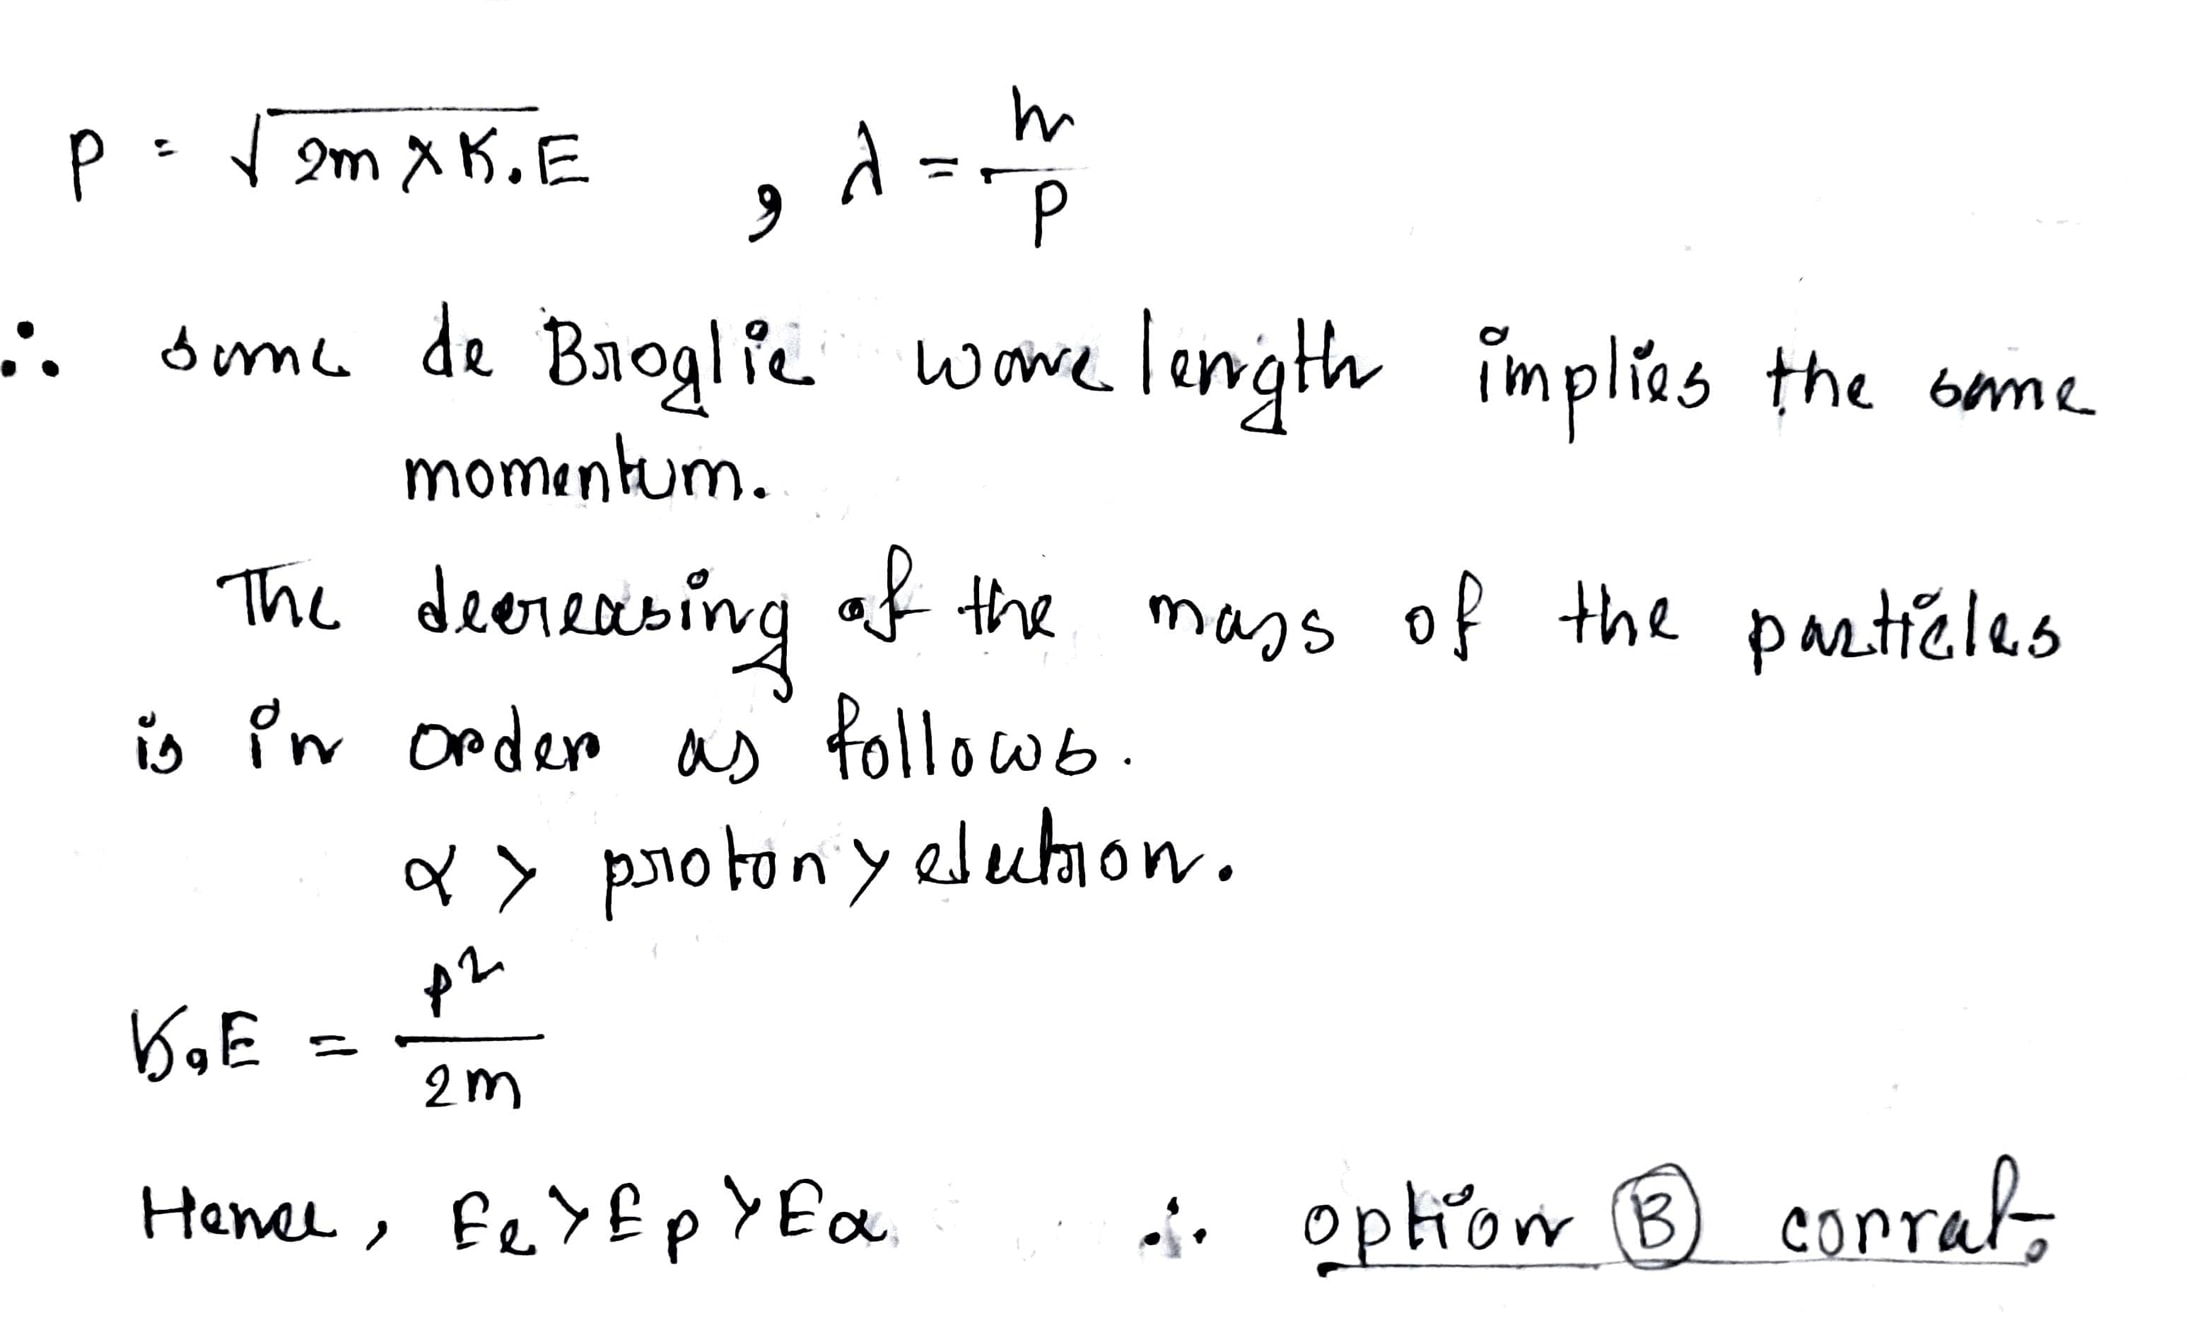 P = √2m × K.E , λ = h/P
∴ same de Broglie wavelength implies the same
momentum.
The decreasing of the mass of the particles
is in order as follows.
α > proton > electron.
K.E = P²/2m
Hence, Ee > Ep > Eα ∴ option (B) corrat.